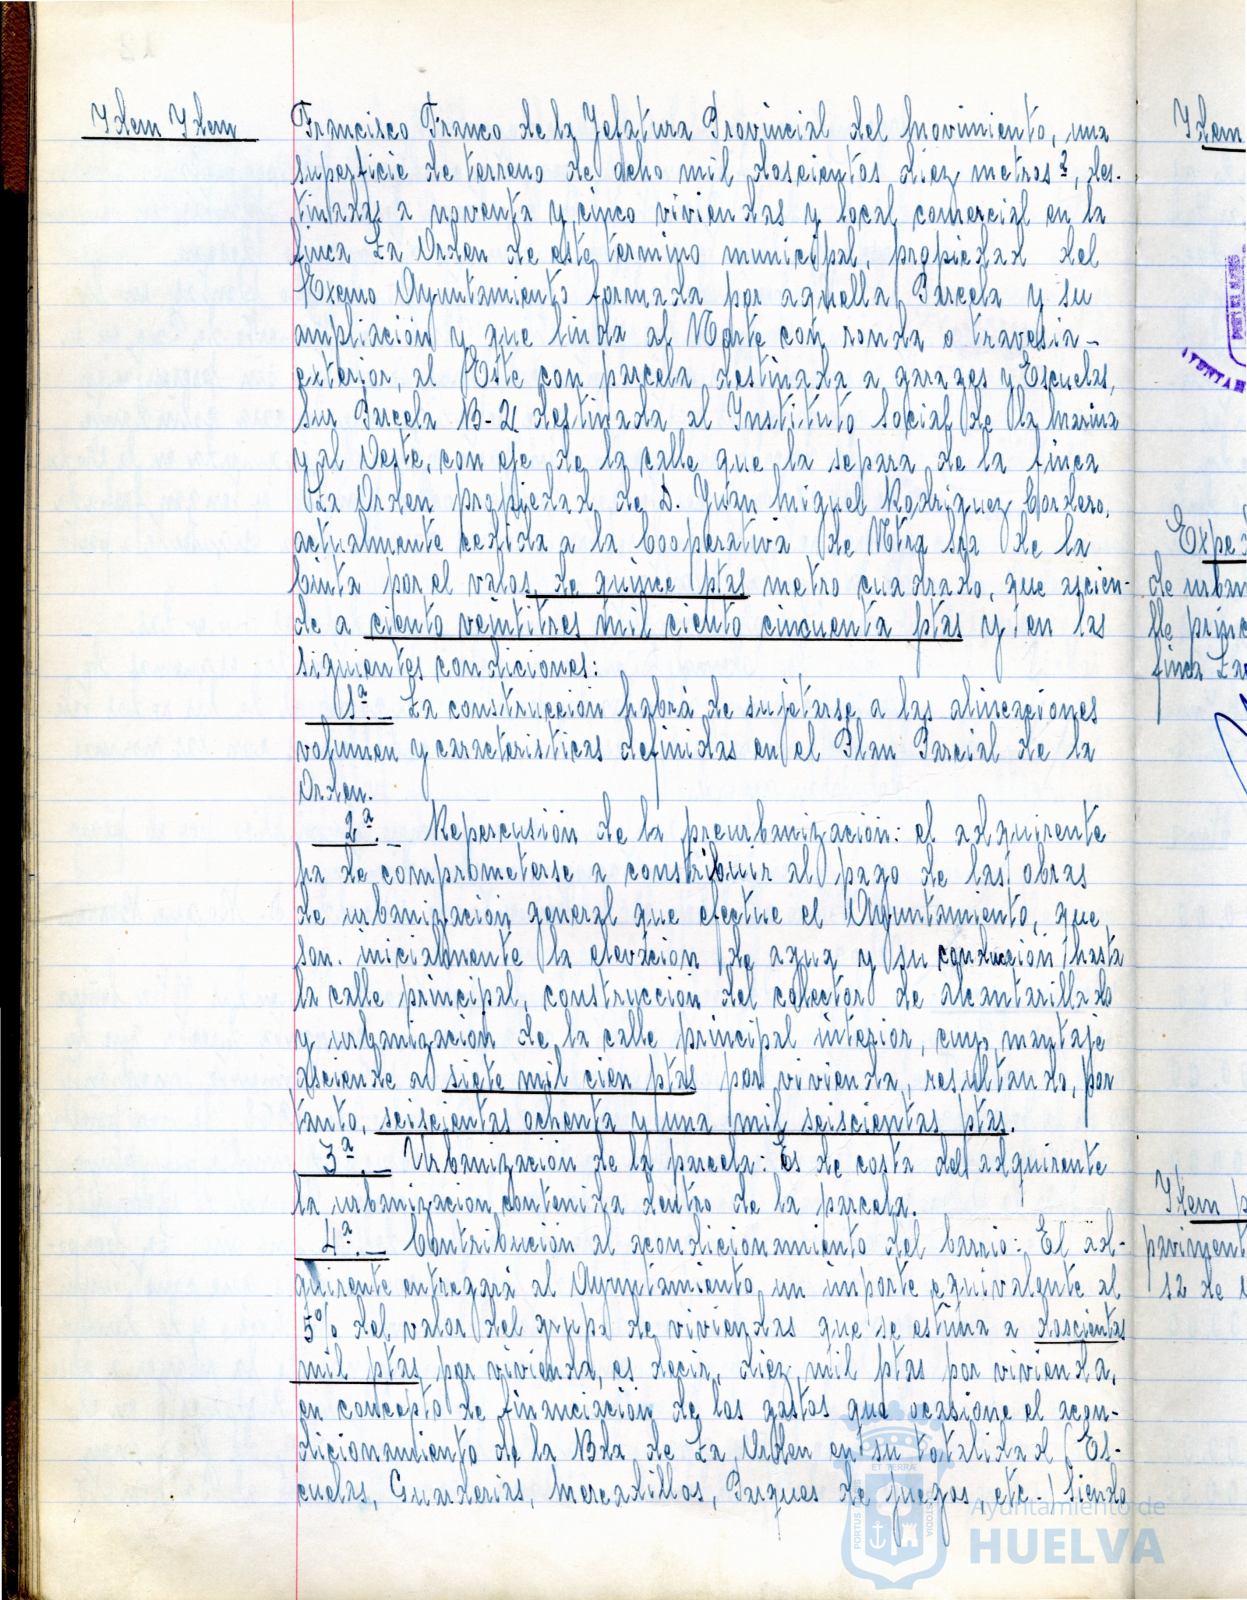 Idem Idem
Francisco Franco de la Jefatura Provincial del Movimiento, una
superficie de terreno de ocho mil doscientos diez metros ², des-
tinadas a noventa y cinco viviendas y local comercial en la
finca La Orden de este termino municipal, propiedad del
Excmo Ayuntamiento formada por aquella Parcela y su
ampliación y que linda al Norte con ronda o travesia-
exterior, al Este con parcela destinada a garages y Escuelas,
Sur Parcela B-21 destinada al Instituto Social de la Marina
y al Oeste, con eje de la calle que la separa de la finca
La Orden propiedad de D. Juan Miguel Rodriguez Cordero,
actualmente cedida a la Cooperativa de Ntra Sra de la
Cinta por el valor de quince ptas metro cuadrado, que ascien-
de a ciento veintitres mil ciento cincuenta ptas y en las
siguientes condiciones:
1ª.- La construcción habrá de sujetarse a las alineaciones
volumen y caracteristicas definidas en el Plan Parcial de la
Orden.
2ª.- Repercusión de la preurbanización: el adquirente
ha de comprometerse a constribuir al pago de las obras
de urbanización general que efectue el Ayuntamiento, que
son. inicialmente la elevacion de agua y su conducción hasta
la calle principal, construccion del colector de alcantarillado
y urbanizacion de la calle principal interior, cuyo montaje
asciende a siete mil cien ptas por vivienda, resultando, por
tanto, seiscientas ochenta y una mil seiscientas ptas.
3ª.- Urbanización de la parcela: Es de costa del adquirente
la urbanizacion contenida dentro de la parcela.
4ª.- Contribución al acondicionamiento del barrio: El ad-
quirente entregará al Ayuntamiento un importe equivalente al
5% del valor del grupo de viviendas que se estima a doscientas
mil ptas por vivienda, es decir, diez mil ptas por vivienda,
en concepto de financiación de los gastos que ocasione el acon-
dicionamiento de la Bda de La Orden en su totalidad (Es-
cuelas, Guarderias, Mercadillos, Parques de juegos, etc.) siendo
Idem
Expe
de urban
lle princ
finca La
Idem p
paviment
12 de
AYUNTAM
PORTUS MARIS
ET TERRAE
CUSTODIA
Ayuntamiento de
HUELVA